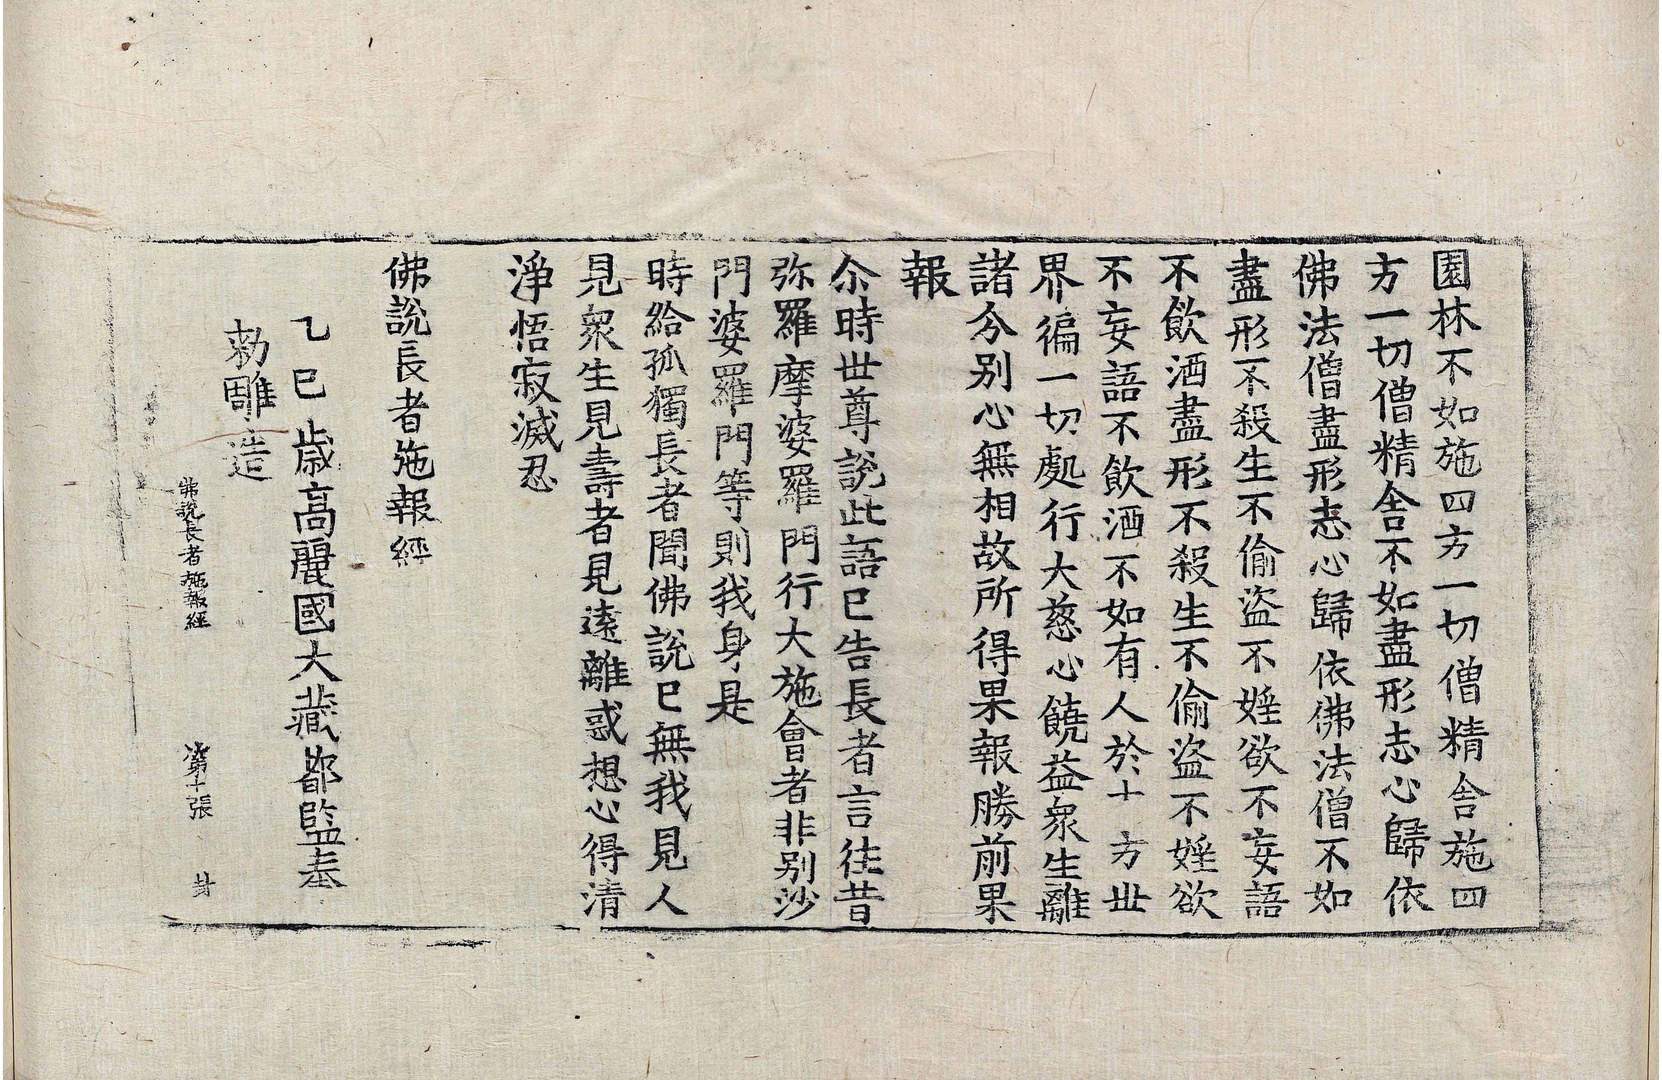 園林不如施四方一切僧精舍施四
方一切僧精舍不如盡形志心歸依
佛法僧盡形志心歸依佛法僧不如
盡形不殺生不偷盜不婬欲不妄語
不飲酒盡形不殺生不偷盜不婬欲
不妄語不飲酒不如有人於十方世
界徧一切處行大慈心饒益衆生離
諸分别心無相故所得果報勝前果
報
尒時世尊說此語已告長者言往昔
弥羅摩婆羅門行大施會者非别沙
門婆羅門等則我身是
時給孤獨長者聞佛說已無我見人
見衆生見壽者見遠離惑想心得清
淨悟寂滅忍
佛說長者施報經
乙巳歳高麗國大藏都監奉
勅雕造
佛說長者施報經 第十張 封